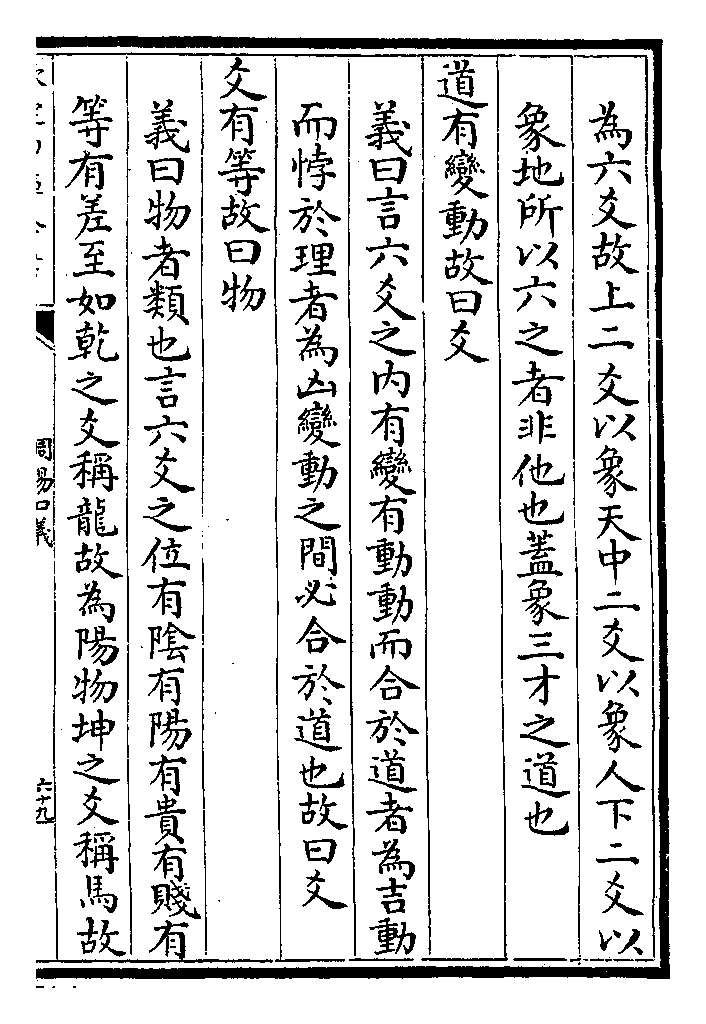 為六爻故上二爻以象天中二爻以象人下二爻以
象地所以六之者非他也蓋象三才之道也
道有變動故曰爻
義曰言六爻之内有變有動動而合於道者為吉動
而悖於理者為凶變動之間必合於道也故曰爻
爻有等故曰物
義曰物者類也言六爻之位有陰有陽有貴有賤有
等有差至如乾之爻稱龍故為陽物坤之爻稱馬故
周易口義
六十九